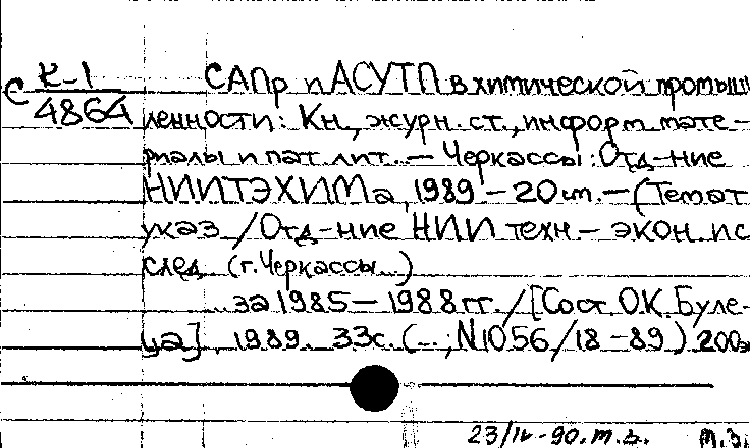 С К-1
4864
САПР и АСУТП в химической промыш
ленности: Кн., журн. ст., информ. мате-
риалы и пат. лит. — Черкассы: Отд-ние
НИИТЭХИМа, 1989 — 20 см. — (Темат.
указ. / Отд-ние НИИ техн.-экон. ис
след. (г. Черкассы...)
за 1985 — 1988 гг. / [Сост. О.К. Буле-
ца], 1989. 33с. (...; N 1056/18-89) 200э
23/IV-90. т.з. т.з.